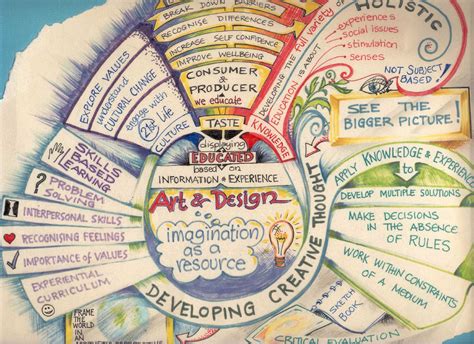 BREAK DOWN BARRIERS
RECOGNISE DIFFERENCES
INCREASE SELF CONFIDENCE
IMPROVE WELLBEING
CONSUMER
& PRODUCER
we educate
TASTE
displaying
EDUCATED
based on
INFORMATION & EXPERIENCE
Art & Design
imagination
as a
resource
DEVELOPING CREATIVE THOUGHT
EXPLORE VALUES
understand
CULTURAL CHANGE
engage with
21st Life
CULTURE
KNOWLEDGE
EDUCATION IS ABOUT
DEVELOPING the full variety of
HOLISTIC
experiences
social issues
stimulation
senses
NOT SUBJECT
BASED!
SEE THE
BIGGER PICTURE!
APPLY KNOWLEDGE & EXPERIENCE
to
DEVELOP MULTIPLE SOLUTIONS
MAKE DECISIONS
IN THE ABSENCE
OF RULES
WORK WITHIN CONSTRAINTS
OF A MEDIUM
SKILLS
BASED
LEARNING
? PROBLEM
SOLVING
INTERPERSONAL SKILLS
RECOGNISING FEELINGS
IMPORTANCE OF VALUES
EXPERIENTIAL
CURRICULUM
FRAME
THE WORLD
IN AN
SKETCH
BOOK
CRITICAL EVALUATION